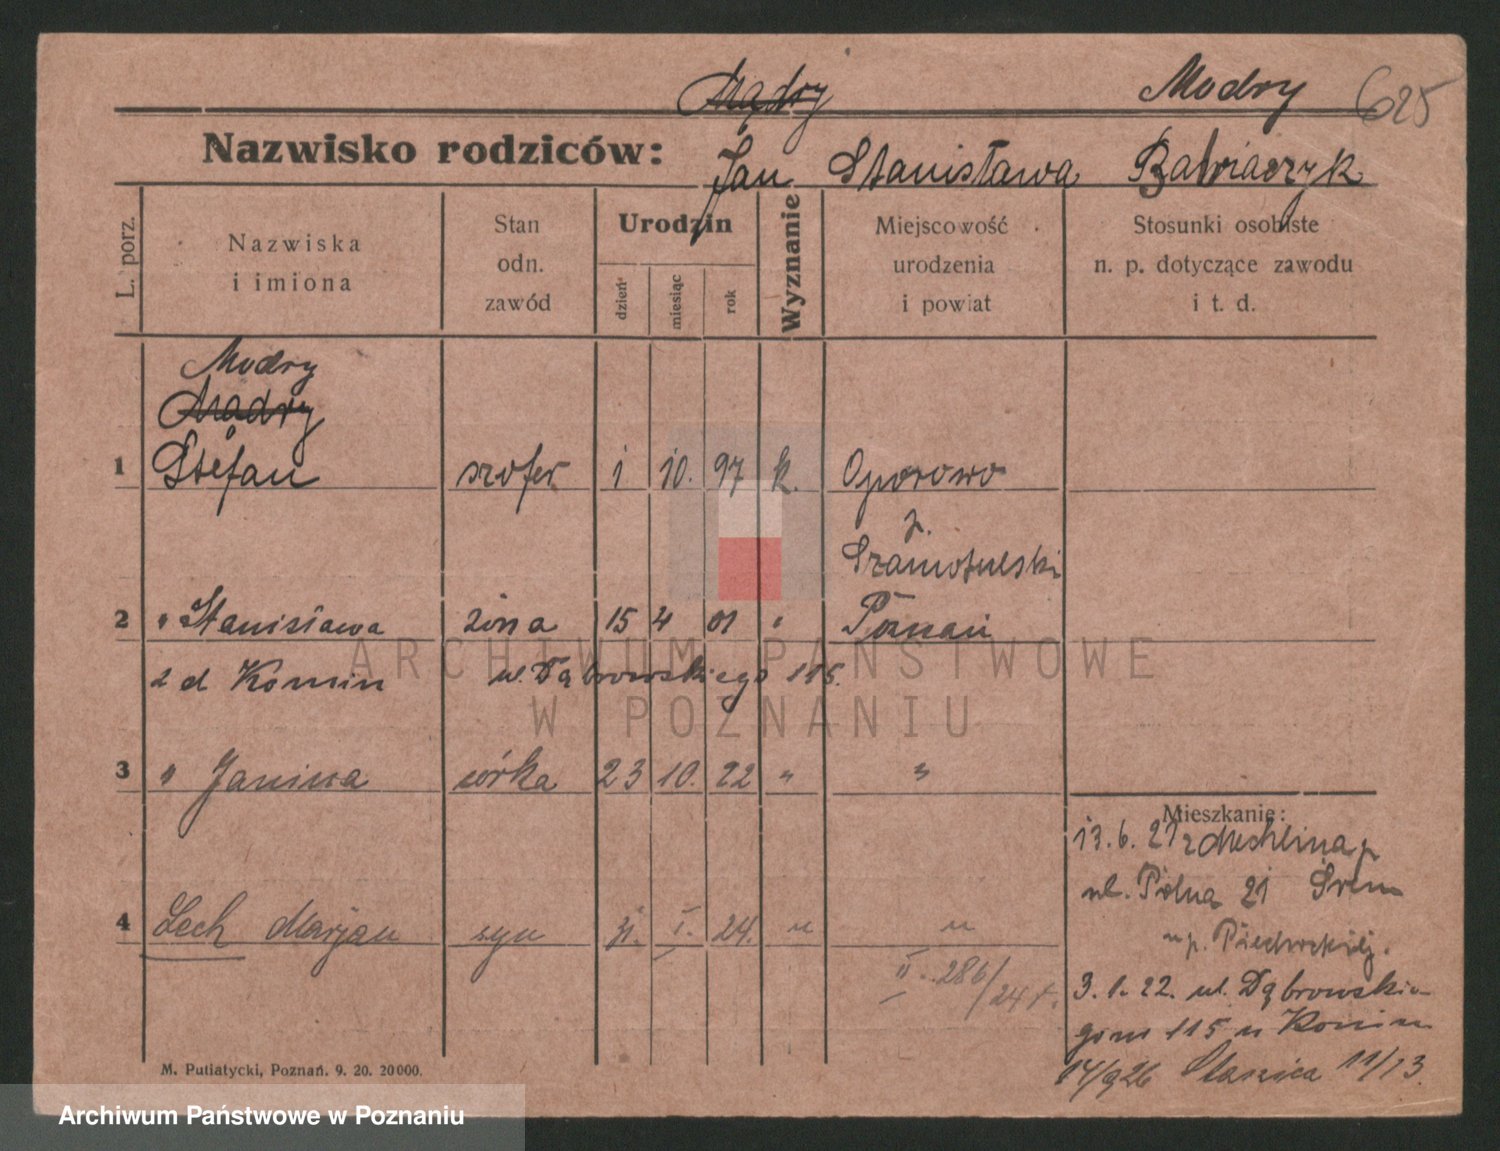 Mądry Modry 625
Nazwisko rodziców: Jan Stanisława Balwiaczyk
L. porz.
Nazwiska
i imiona
Stan
odn.
zawód
Urodzin
dzień
miesiąc
rok
Wyznanie
Miejscowość
urodzenia
i powiat
Stosunki osobiste
n. p. dotyczące zawodu
i t. d.
Modry
Mądry
1 Stefan szofer 1 10. 97 k. Oporowo
p.
Szamotulski
2 " Stanisława żona 15 4 01 " Poznań
z d Komin ul. Dąbrowskiego 115.
3 " Janina córka 23 10. 22 " "
Mieszkanie:
13. 6. 21 z Mechlina p
ul. Polna 21 Śrem
4 Lech Marjan syn 31. I. 24. " "
u p. Piechockiej.
II. 286/24 r.
3. 1. 22. ul. Dąbrowskie-
go 115 u Komin
14/9 26 Staszica 11/13.
M. Putiatycki, Poznań. 9. 20. 20000.
ARCHIWUM PAŃSTWOWE
W POZNANIU
Archiwum Państwowe w Poznaniu